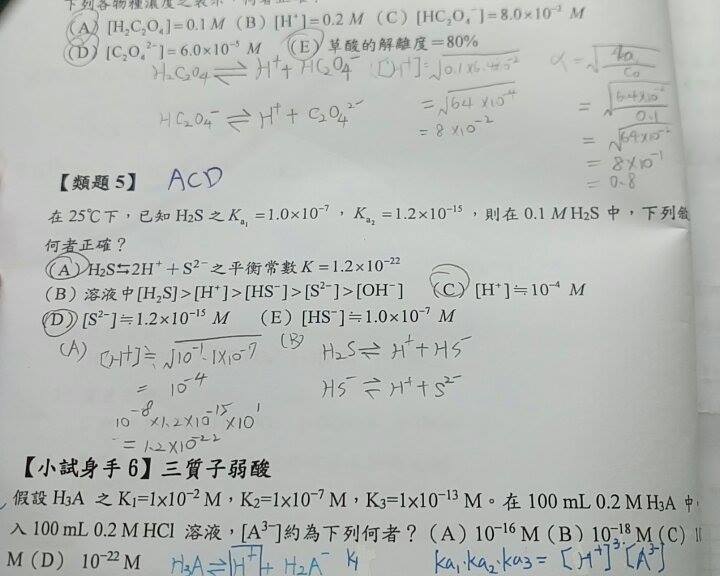 (A) [H₂C₂O₄]=0.1 M (B) [H⁺]=0.2 M (C) [HC₂O₄⁻]=8.0×10⁻² M
(D) [C₂O₄²⁻]=6.0×10⁻⁵ M (E) 草酸的解離度=80%
H₂C₂O₄⇌H⁺+HC₂O₄⁻ [H⁺]=√0.1×6.4×10⁻²
=√64×10⁻⁴
=8×10⁻²
HC₂O₄⁻⇌H⁺+C₂O₄²⁻
α=√
=√
0.1
=√64×10⁻²
=8×10⁻¹
=0.8
【類題5】 ACD
在25℃下,已知H₂S之Ka₁=1.0×10⁻⁷,Ka₂=1.2×10⁻¹⁵,則在0.1 M H₂S中,下列敘
何者正確?
(A) H₂S⇆2H⁺+S²⁻之平衡常數K=1.2×10⁻²²
(B) 溶液中[H₂S]>[H⁺]>[HS⁻]>[S²⁻]>[OH⁻] (C) [H⁺]≒10⁻⁴ M
(D) [S²⁻]≒1.2×10⁻¹⁵ M (E) [HS⁻]≒1.0×10⁻⁷ M
(A) [H⁺]≒√10⁻¹·1×10⁻⁷
=10⁻⁴
10⁻⁸×1.2×10⁻¹⁵×10¹
=1.2×10⁻²²
(B) H₂S⇌H⁺+HS⁻
HS⁻⇌H⁺+S²⁻
【小試身手6】三質子弱酸
假設H₃A之K₁=1x10⁻² M,K₂=1x10⁻⁷ M,K₃=1x10⁻¹³ M。在100 mL 0.2 M H₃A中
入100 mL 0.2 M HCl 溶液,[A³⁻]約為下列何者?(A) 10⁻¹⁶ M (B) 10⁻¹⁸ M (C)
M (D) 10⁻²² M
H₃A⇌H⁺+H₂A⁻ K₁
ka₁·ka₂·ka₃=[H⁺]³·[A³⁻]